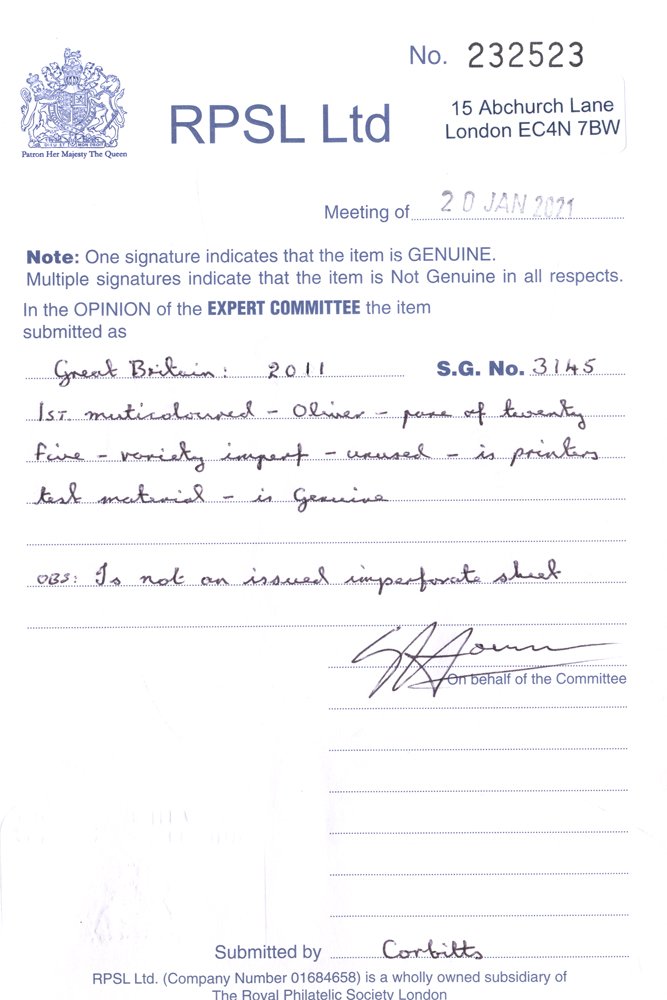 No. 232523
RPSL Ltd
15 Abchurch Lane
London EC4N 7BW
DIEU ET MON DROIT
Patron Her Majesty The Queen
Meeting of 20 JAN 2021
Note: One signature indicates that the item is GENUINE.
Multiple signatures indicate that the item is Not Genuine in all respects.
In the OPINION of the EXPERT COMMITTEE the item
submitted as
Great Britain: 2011 S.G. No. 3145
1ST muticoloured - Oliver - pane of twenty
five - variety imperf - unused - is printers
test material - is Genuine
OBS: Is not an issued imperforate sheet
On behalf of the Committee
Submitted by Corbitts
RPSL Ltd. (Company Number 01684658) is a wholly owned subsidiary of
The Royal Philatelic Society London